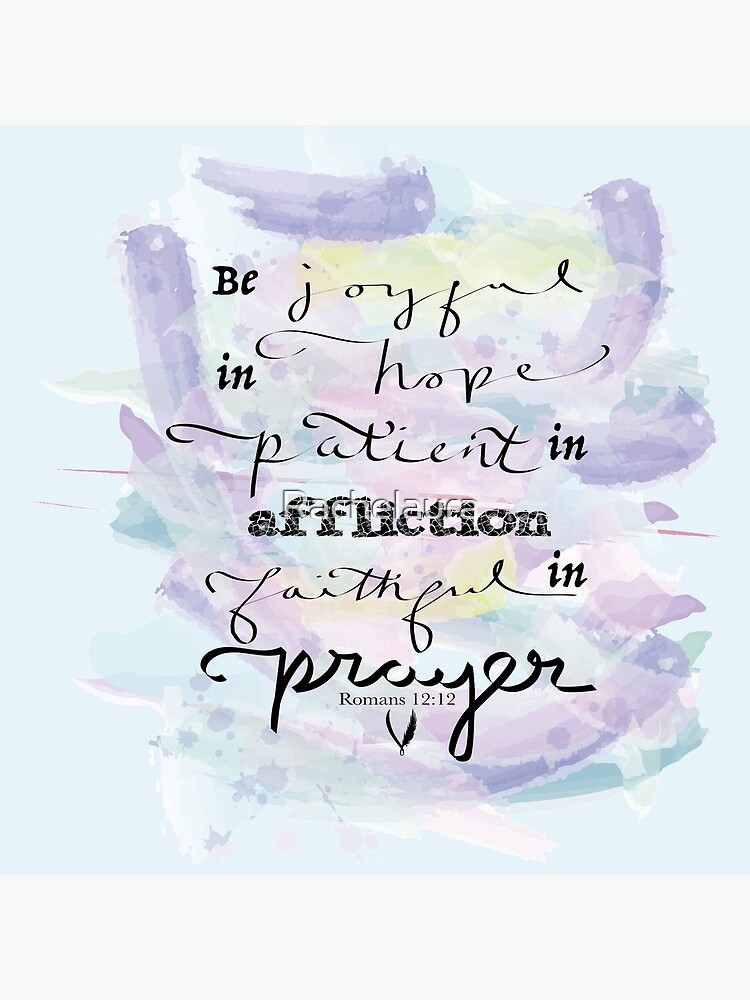 Be joyful
in hope
patient in
affliction
Rachelaura
faithful in
prayer
Romans 12:12